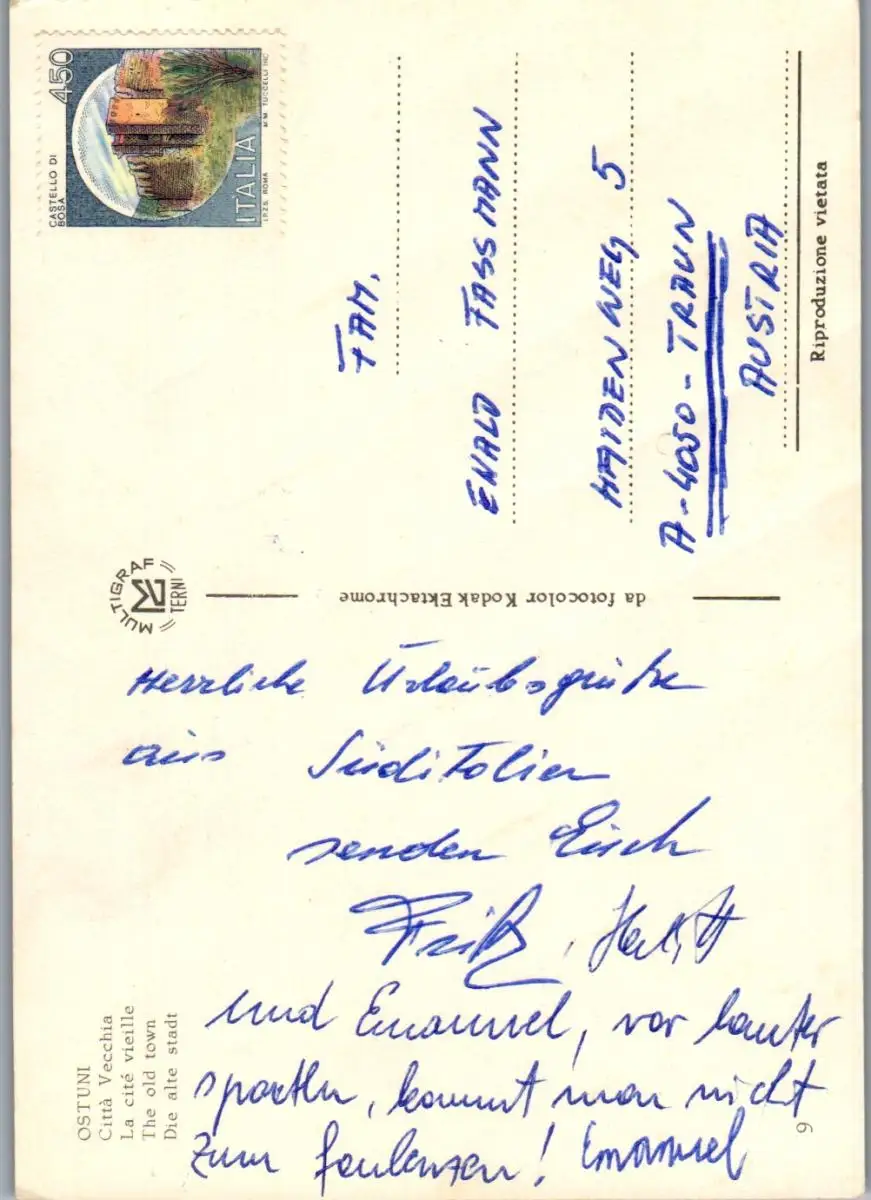 OSTUNI
Città Vecchia
La cité vieille
The old town
Die alte stadt
Herzliche Urlaubsgrüße
aus Süditalien
senden Euch
Fritz,
und Emanuel, vor lauter
sporteln, kommt man nicht
zum faulenzen! Emanuel
9
MULTIGRAF
TERNI
da fotocolor Kodak Ektachrome
CASTELLO DI
BOSA
450
ITALIA
I.P.Z.S. ROMA
M.M. TUCCELLI INC.
FAM.
EWALD FASSMANN
HAIDENWEG 5
A-4050-TRAUN
AUSTRIA
Riproduzione vietata